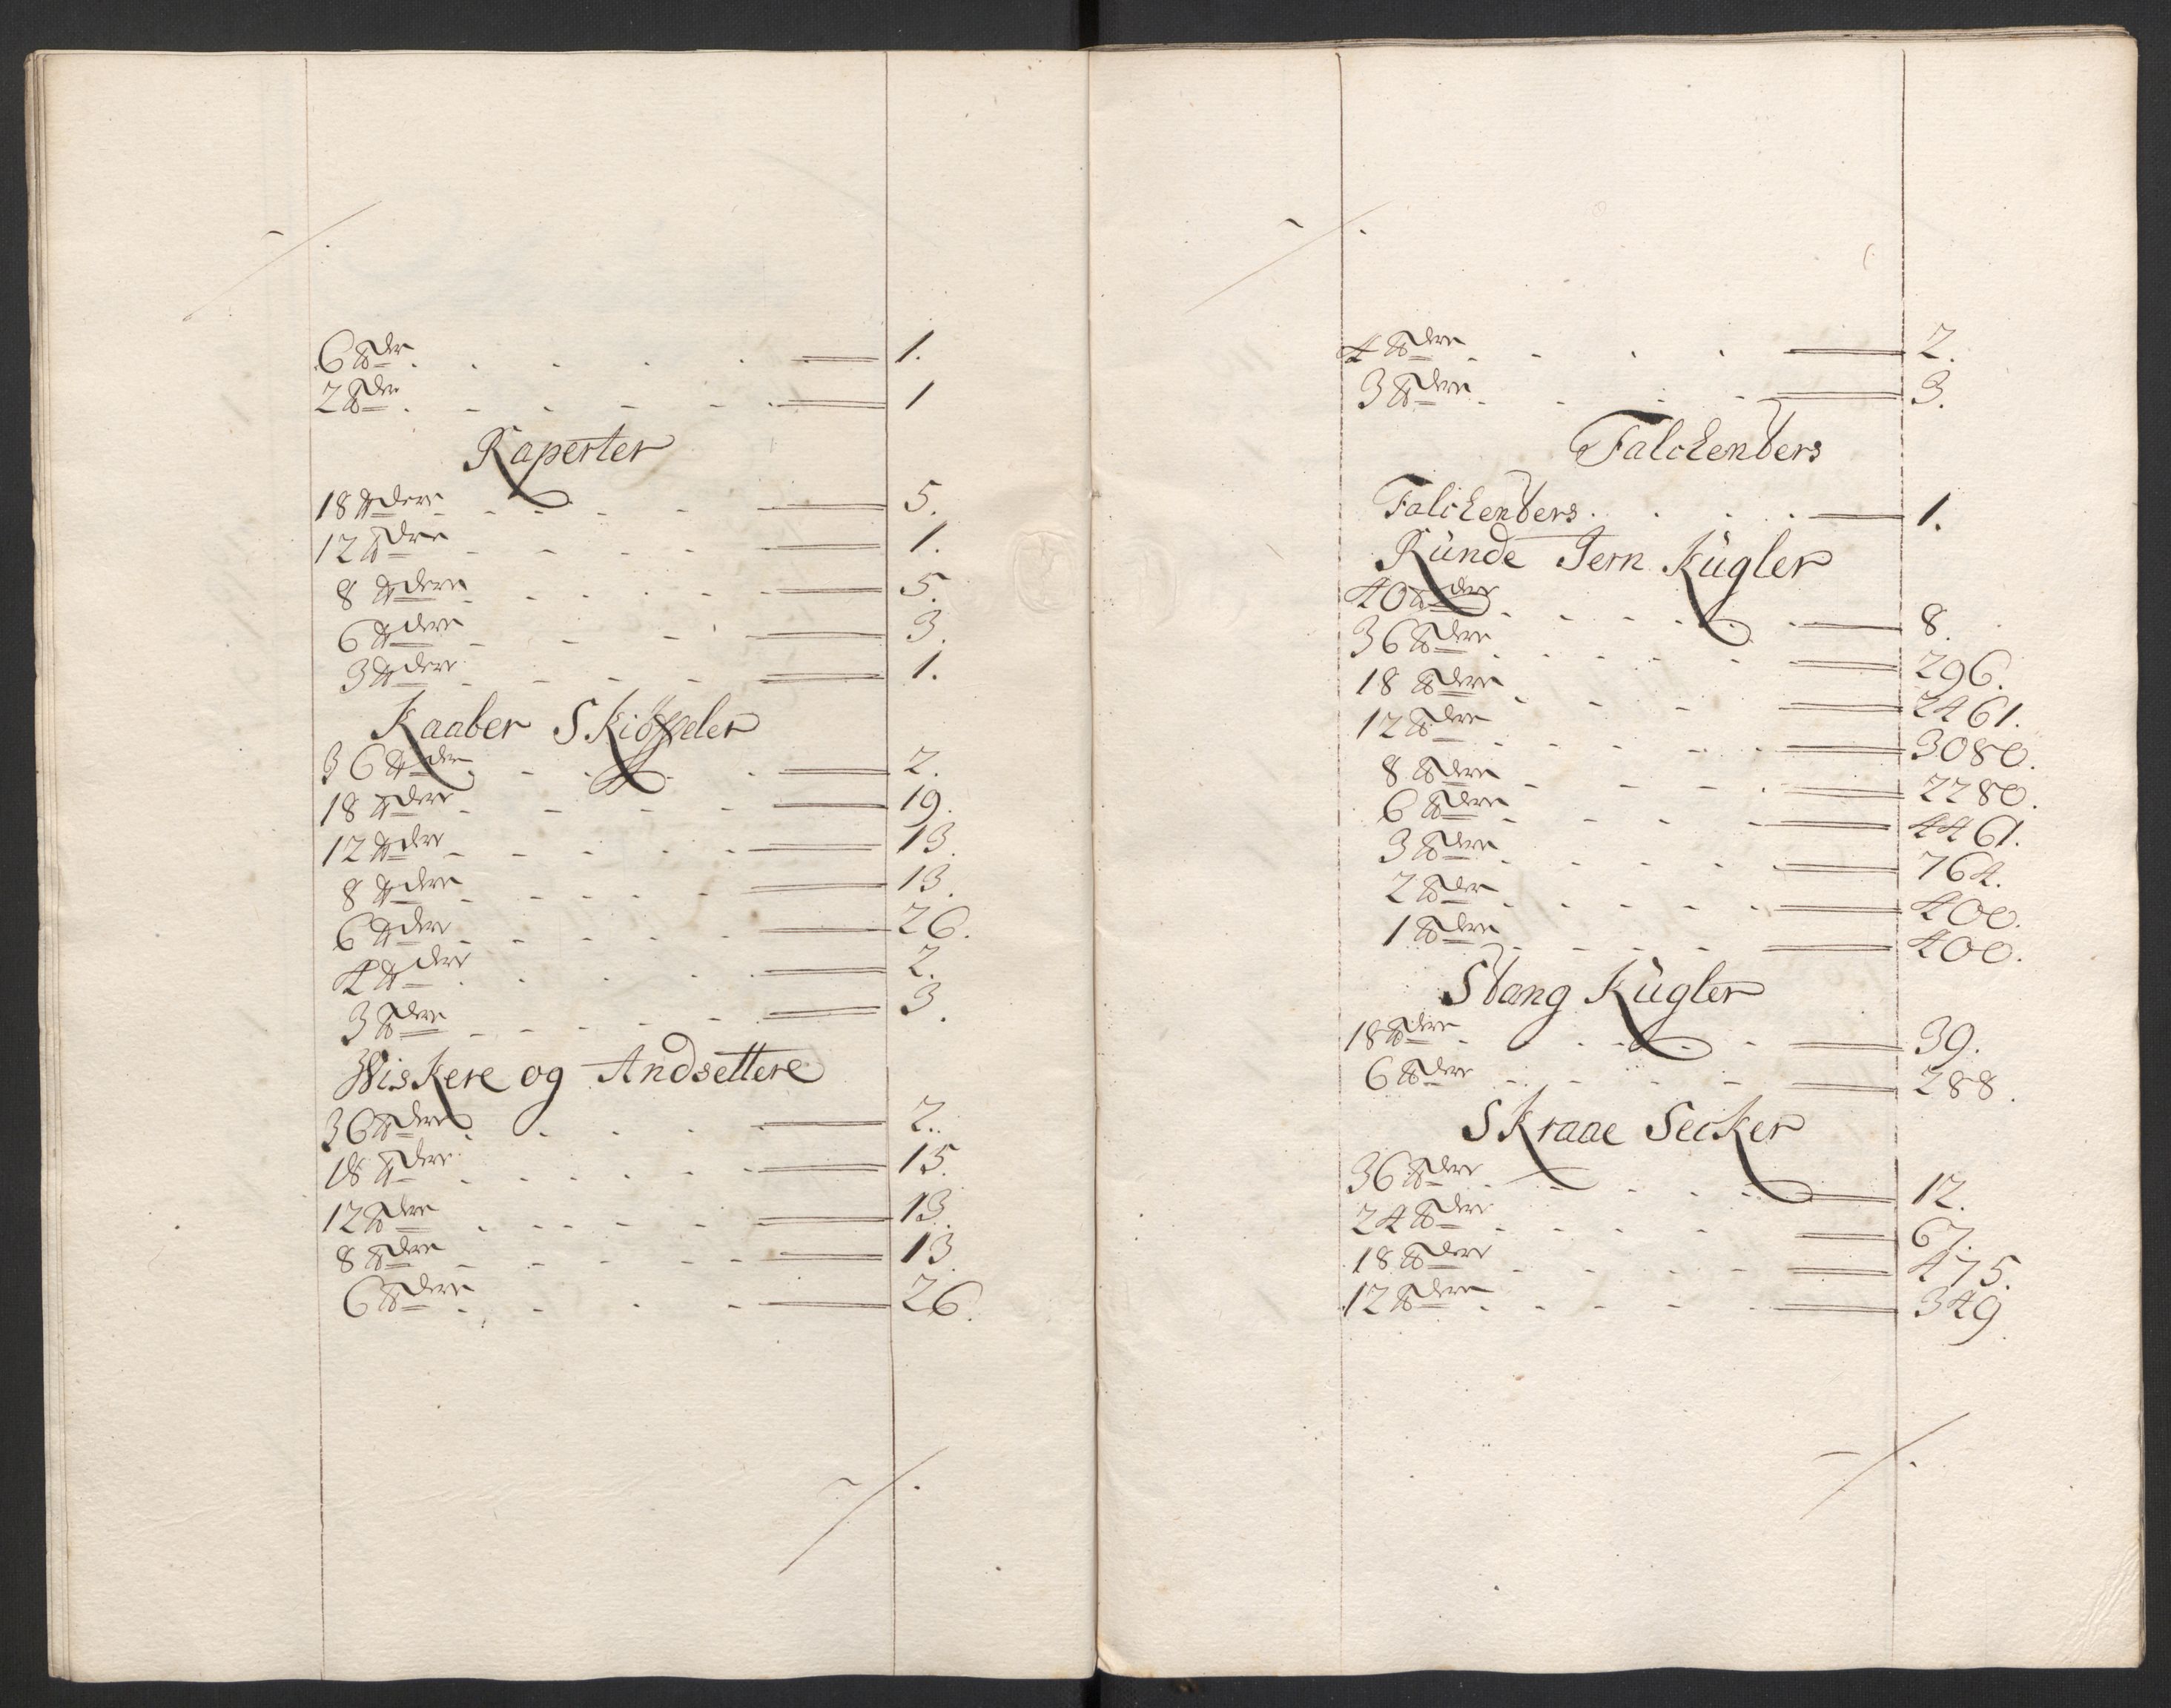 6 ℔der 1.
2 ℔der 1
Raperter
18 ℔dere 5.
12 ℔dere 1.
8 ℔dere 5.
6 ℔dere 3.
3 ℔dere 1.
Kaaber Skiöffeler
36 ℔der 2.
18 ℔dere 19.
12 ℔dere 13.
8 ℔dere 13.
6 ℔dere 26.
4 ℔dere 2.
3 ℔dere 3.
Wiskere og Andsettere
36 ℔dere 2.
18 ℔dere 15.
12 ℔dere 13.
8 ℔dere 13.
6 ℔dere 26.
4 ℔dere 2.
3 ℔dere 3.
Falckenters
Falckenters 1.
Runde Jern Kugler
40 ℔dere 8.
36 ℔dere 296.
18 ℔dere 2461.
12 ℔dere 3080.
8 ℔dere 2280.
6 ℔dere 4461.
3 ℔dere 764.
2 ℔der 400.
1 ℔dere 400.
Stang Kugler
18 ℔dere 39.
6 ℔dere 288.
Skraae Secker
36 ℔dere 12.
24 ℔dere 67.
18 ℔dere 475.
12 ℔dere 349